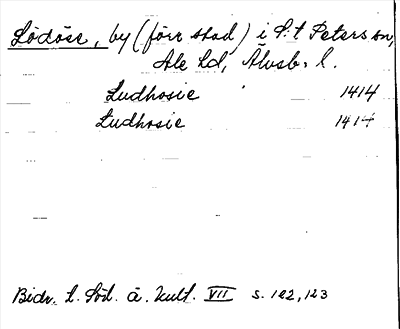 Lödöse, by (förr stad) i S:t Peters sn,
Ale hd, Älvsb. l.
Ludhosie 1414
Ludhosie 1414
Bidr. t. Söd. å. kult. VII s. 122, 123